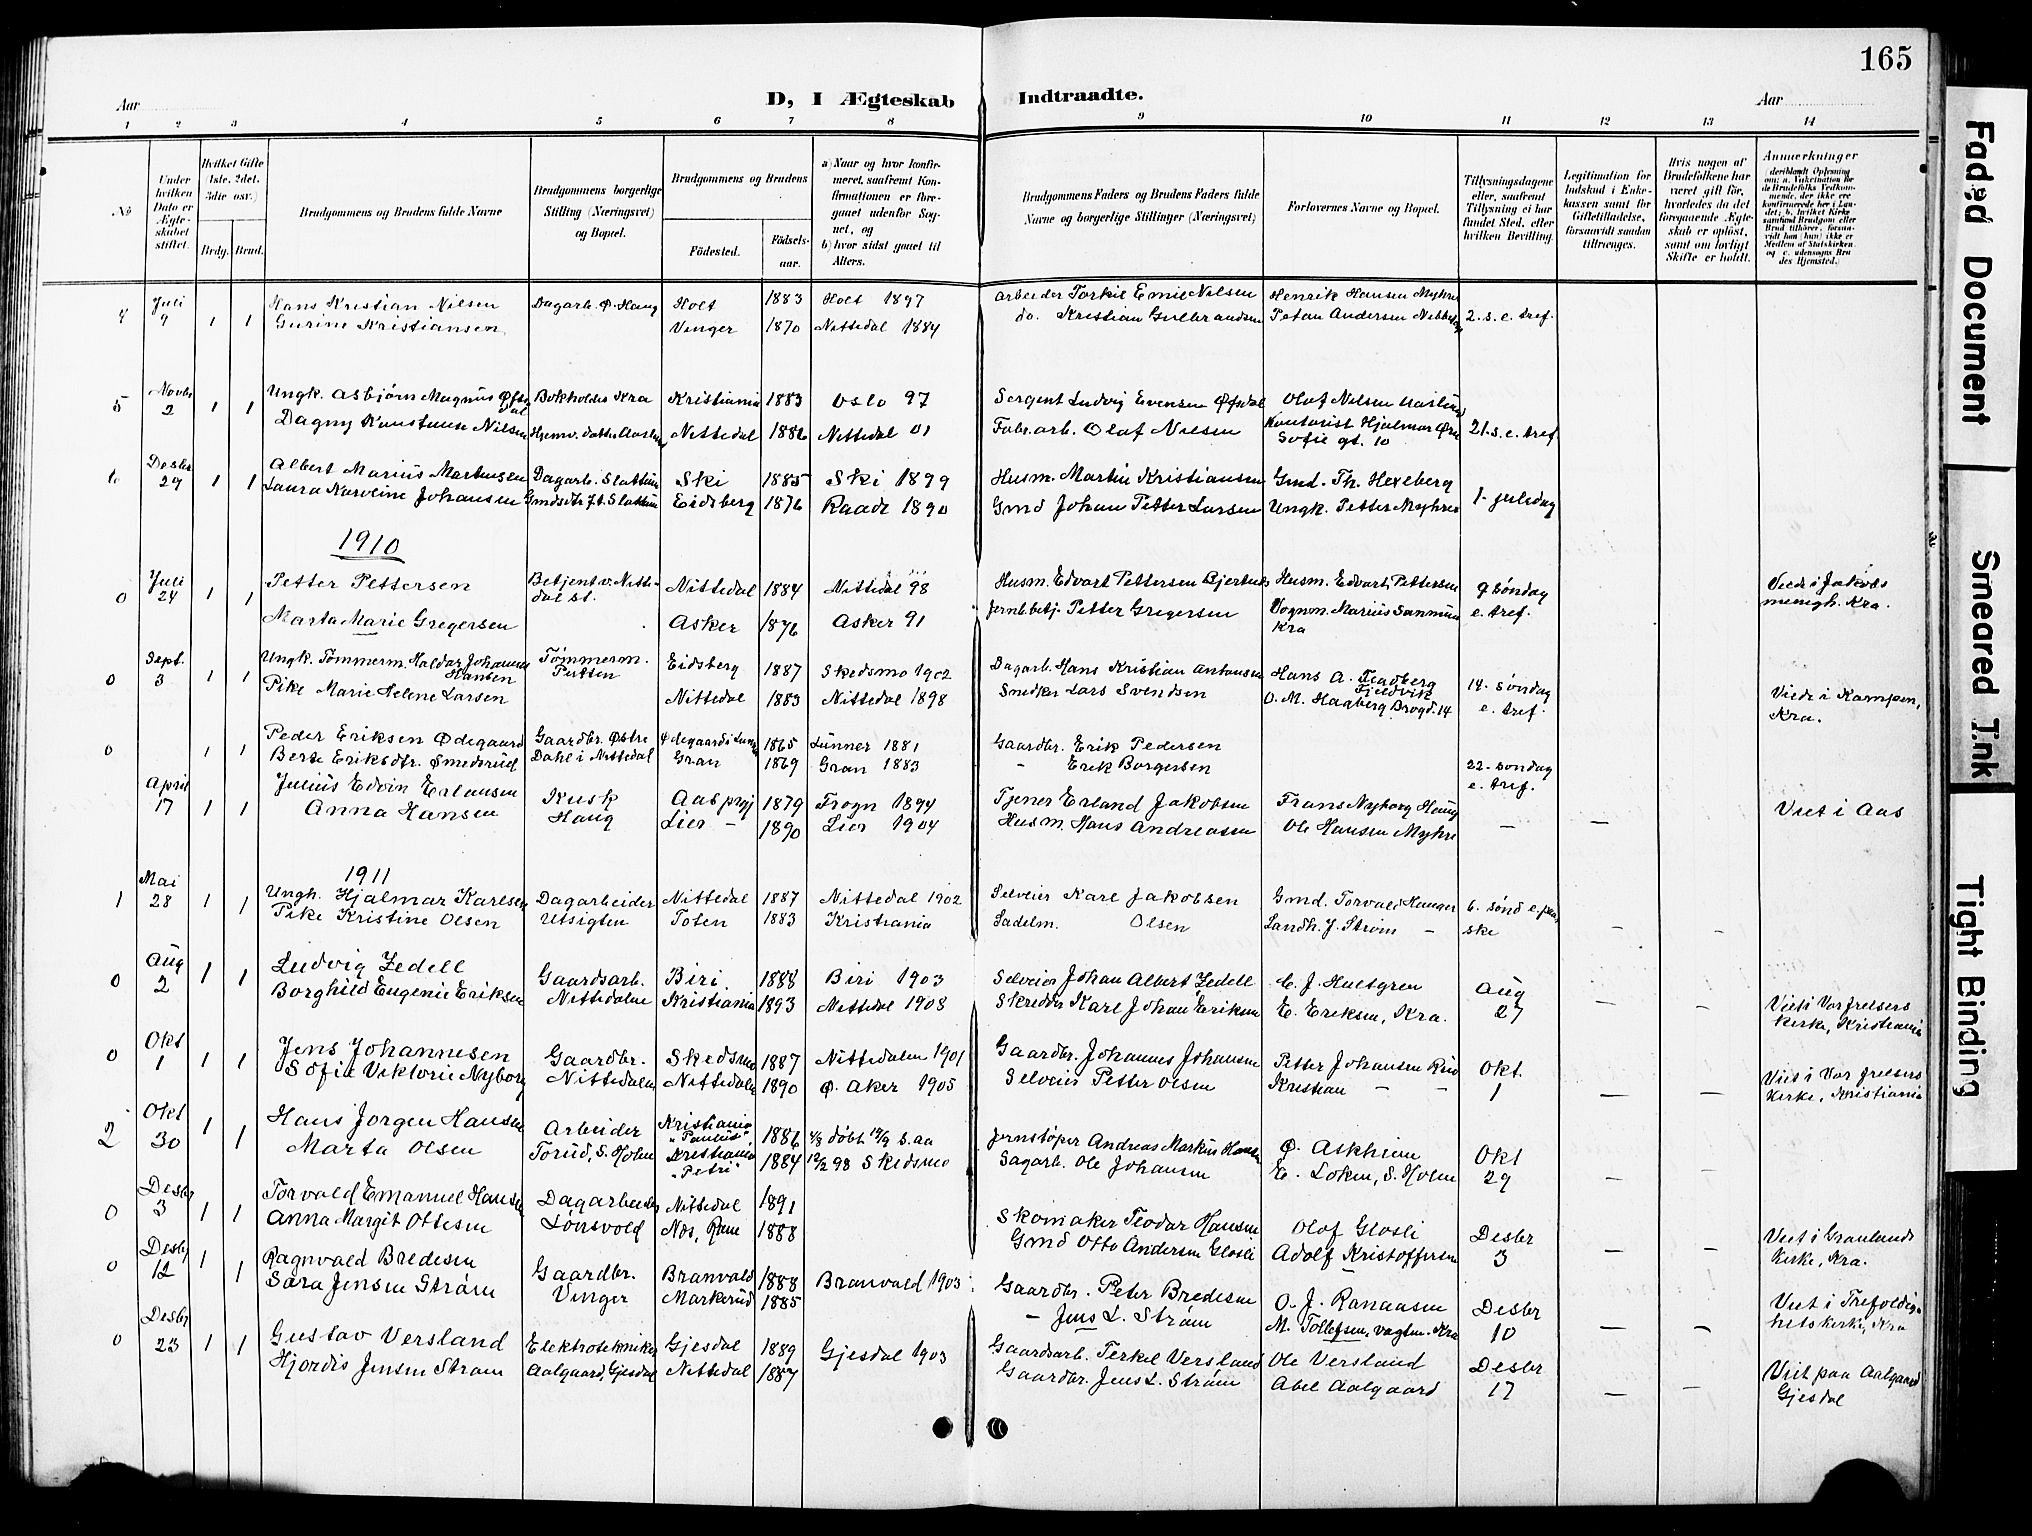 165
Aar
D, I Ægteskab Indtraadte.
Aar
1 2 3 4 5 6 7 8 9 10 11 12 13 14
№
Under hvilken Dato er Ægteskabet stiftet.
Hvilket Gifte (1ste, 2det, 3die osv.)
Brdg. Brud.
Brudgommens og Brudens fulde Navne
Brudgommens borgerlige Stilling (Næringsvei) og Bopæl.
Brudgommens og Brudens
Födested. Födselsaar.
a) Naar og hvor konfirmeret, saafremt Konfirmationen er foregaaet udenfor Sognet, og b) hvor sidst gaaet til Alters.
Brudgommens Faders og Brudens Faders fulde Navne og borgerlige Stillinger (Næringsvei)
Forlovernes Navne og Bopæl.
Tillysningsdagene eller, saafremt Tillysning ei har fundet Sted, efter hvilken Bevilling.
Legitimation for Indskud i Enkekassen samt for Giftetilladelse, forsaavidt saadan tiltrænges.
Hvis nogen af Brudefolkene har været gift før, hvorledes da det foregaaende Ægteskab er oplöst, samt om lovligt Skifte er holdt.
Anmærkninger (deriblandt Oplysning om: a. Vakcination for de Brudefolks Vedkommende, der ikke ere konfirmerede her i Landet; b. hvilket Kirkesamfund Brudgom eller Brud tilhörer, forsaavidt han (hun) ikke er Medlem af Statskirken og c. udensogns Brudes Hjemsted.)
4 Juli 4 1 1 Hans Kristian Nilsen Dagarb. Ø. Haug Holt 1883 Holt 1897 Arbeider Torkil Emil Nilsen Henrik Hansen Myhre
Gurine Kristiansen Vinger 1870 Nittedal 1884 do. Kristian Gulbrandsen Andersen 2. s. e. tref.
5 Novbr 2 1 1 Ungk. Asbjørn Magnus Øfsdal Bokholder Kra Kristiania 1883 Oslo 97 Sergent Ludvig Evensen Øfsdal Olaf Nilsen
Dagny Konstanse Nilsen Hjemv. datter Nittedal 1882 Nittedal 01 Fabr.arb. Olaf Nilsen Kontorist Hjalmar Sofie gt. 10 21. s. e. tref.
6 Desbr 29 1 1 Albert Marius Martinsen Dagarb. Slattum Ski 1885 Ski 1899 Husm. Martin Kristiansen Gmd. Th. Hexeberg
Laura Narveine Johansen Gmdsdtr f.t. Slattum Eidsberg 1876 Raade 1890 Gmd Johan Petter Larsen Ungk. Petter Myhrer 1. juledag
1910
0 Juli 24 1 1 Petter Pettersen Betjent v. Nittedal st. Nittedal 1884 Nittedal 98 Husm. Edvart Pettersen Bjertnes Husm. Edvart Pettersen 9 søndag e. tref. Viede i Jakobs menigh. Kra.
Marta Marie Gregersen Asker 1876 Asker 91 Jernb.betj. Petter Gregersen Vognm. Marius Kra
0 Sept. 3 1 1 Ungk. Tømmerm. Haldor Johannes Hansen Tømmerm. Eidsberg 1887 Skedsmo 1902 Dagarb. Hans Kristian Antonsen Hans A. 14. søndag e. tref.
Pike Marie Helene Larsen Nittedal 1883 Nittedal 1898 Snedker Lars Svendsen O. M. Hagberg Brogd. 14 Viede i Kampen, Kra.
0 1 1 Peder Eriksen Ødegaard Gaardbr. Østre Ødegaard i Lunner 1865 Lunner 1881 Gaardbr. Erik Pedersen
Berte Eriksdtr. Smedsrud Dahl i Nittedal Gran 1869 Gran 1883 - Erik Borgersen 22. søndag e. tref.
April 17 1 1 Julius Edvin Erlansen Kusk Aas prgj 1879 Frogn 1894 Tjener Erland Jakobsen Frans Nyborg Haug
Anna Hansen Haug Lier - 1890 Lier 1904 Husm. Hans Andreassen Ole Hansen Myhre - - Viet i Aas
1911
1 Mai 28 1 1 Ungk. Hjalmar Karlsen Dagarbeider Nittedal 1887 Nittedal 1902 Selveier Karl Jakobsen Gmd. Torvald Hauger 6. sønd e. paaske
Pike Kristine Olsen Utsigten Toten 1883 Kristiania Sadelm. Olsen Landh. J. Strøm - - -
0 Aug 2 1 1 Ludvig Zedell Gaardsarb. Biri 1888 Biri 1903 Selveier Johan Albert Zedell C. J. Hultgren Aug 27
Borghild Eugenie Eriksen Nittedalen Kristiania 1893 Nittedal 1908 Skredder Karl Johan Eriksen E. Eriksen, Kra. - - Viet i Vor frelsers kirke, Kristiania
0 Okt 1 1 1 Jens Johannesen Gaardbr. Skedsmo 1887 Nittedalen 1901 Gaardbr. Johannes Johansen Petter Johansen Okt. 1
Sofie Viktorie Nyborg Nittedalen Nittedalen 1890 Ø. Aker 1905 Selveier Petter Olsen Kristian - - - - Viet i Vor frelsers kirke, Kristiania
2 Okt 30 1 1 Hans Jorgen Hansen Arbeider Kristiania "Paulus" 1886 4/8 døbt 19/9 s. aa Jernstøper Andreas Markus Hansen Ø. Askheim Okt 29
Marta Olsen Torud, S. Holm Kristiania "Petri" 1884 12/2 98 Skedsmo Sagarb. Ole Johansen E. Loken, S. Holm - -
0 Desbr 3 1 1 Torvald Emanuel Hansen Dagarbeider Nittedal 1891 Skomaker Teodor Hansen Olof Glosli Desbr 3
Anna Margit Ottesen Lönsvold Nes, Rom 1888 Gmd Otto Andersen Glosli Adolf Kristoffersen - - Viet i Grønlands kirke, Kra.
0 Desbr 12 1 1 Ragnvald Bredesen Gaardbr. Branvald 1888 Branvald 1903 Gaardbr. Peter Bredesen O. J. Ranaasen Desbr 10
Sara Jensen Strøm Vinger Markerud 1885 - Jens L. Strøm M. Tollefsen, vagtm. Kra - - Viet i Trefoldighetskirke, Kra
0 Desbr 23 1 1 Gustav Versland Elektrotekniker Gjesdal 1889 Gjesdal 1903 Gaardsarb. Terkel Versland Ole Versland Desbr 17
Hjordis Jensen Strøm Aalgaard, Gjesdal Nittedal 1887 Gaardbr. Jens L. Strøm Abel Aalgaard - - Viet paa Aalgaard Gjesdal
Faded Document
Smeared Ink
Tight Binding